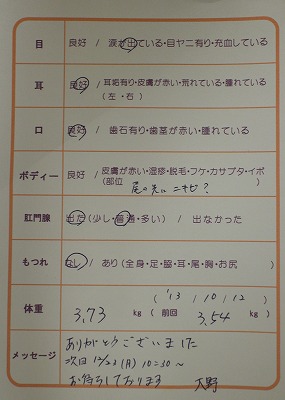 目 良好 / 涙が出ている・目ヤニ有り・充血している
耳 良好 / 耳垢有り・皮膚が赤い・荒れている・腫れている
(左・右)
口 良好 / 歯石有り・歯茎が赤い・腫れている
ボディー 良好 / 皮膚が赤い・湿疹・脱毛・フケ・カサブタ・イボ
(部位 尾の先に ニキビ? )
肛門腺 出た (少し・普通・多い) / 出なかった
もつれ なし / あり (全身・足・脇・耳・尾・胸・お尻 )
( '13 / 10 / 12 )
体重 3.73 kg ( 前回 3.54 kg )
メッセージ ありがとうございました
次回 12/23 (月) 10:30～
お待ちしております 大野